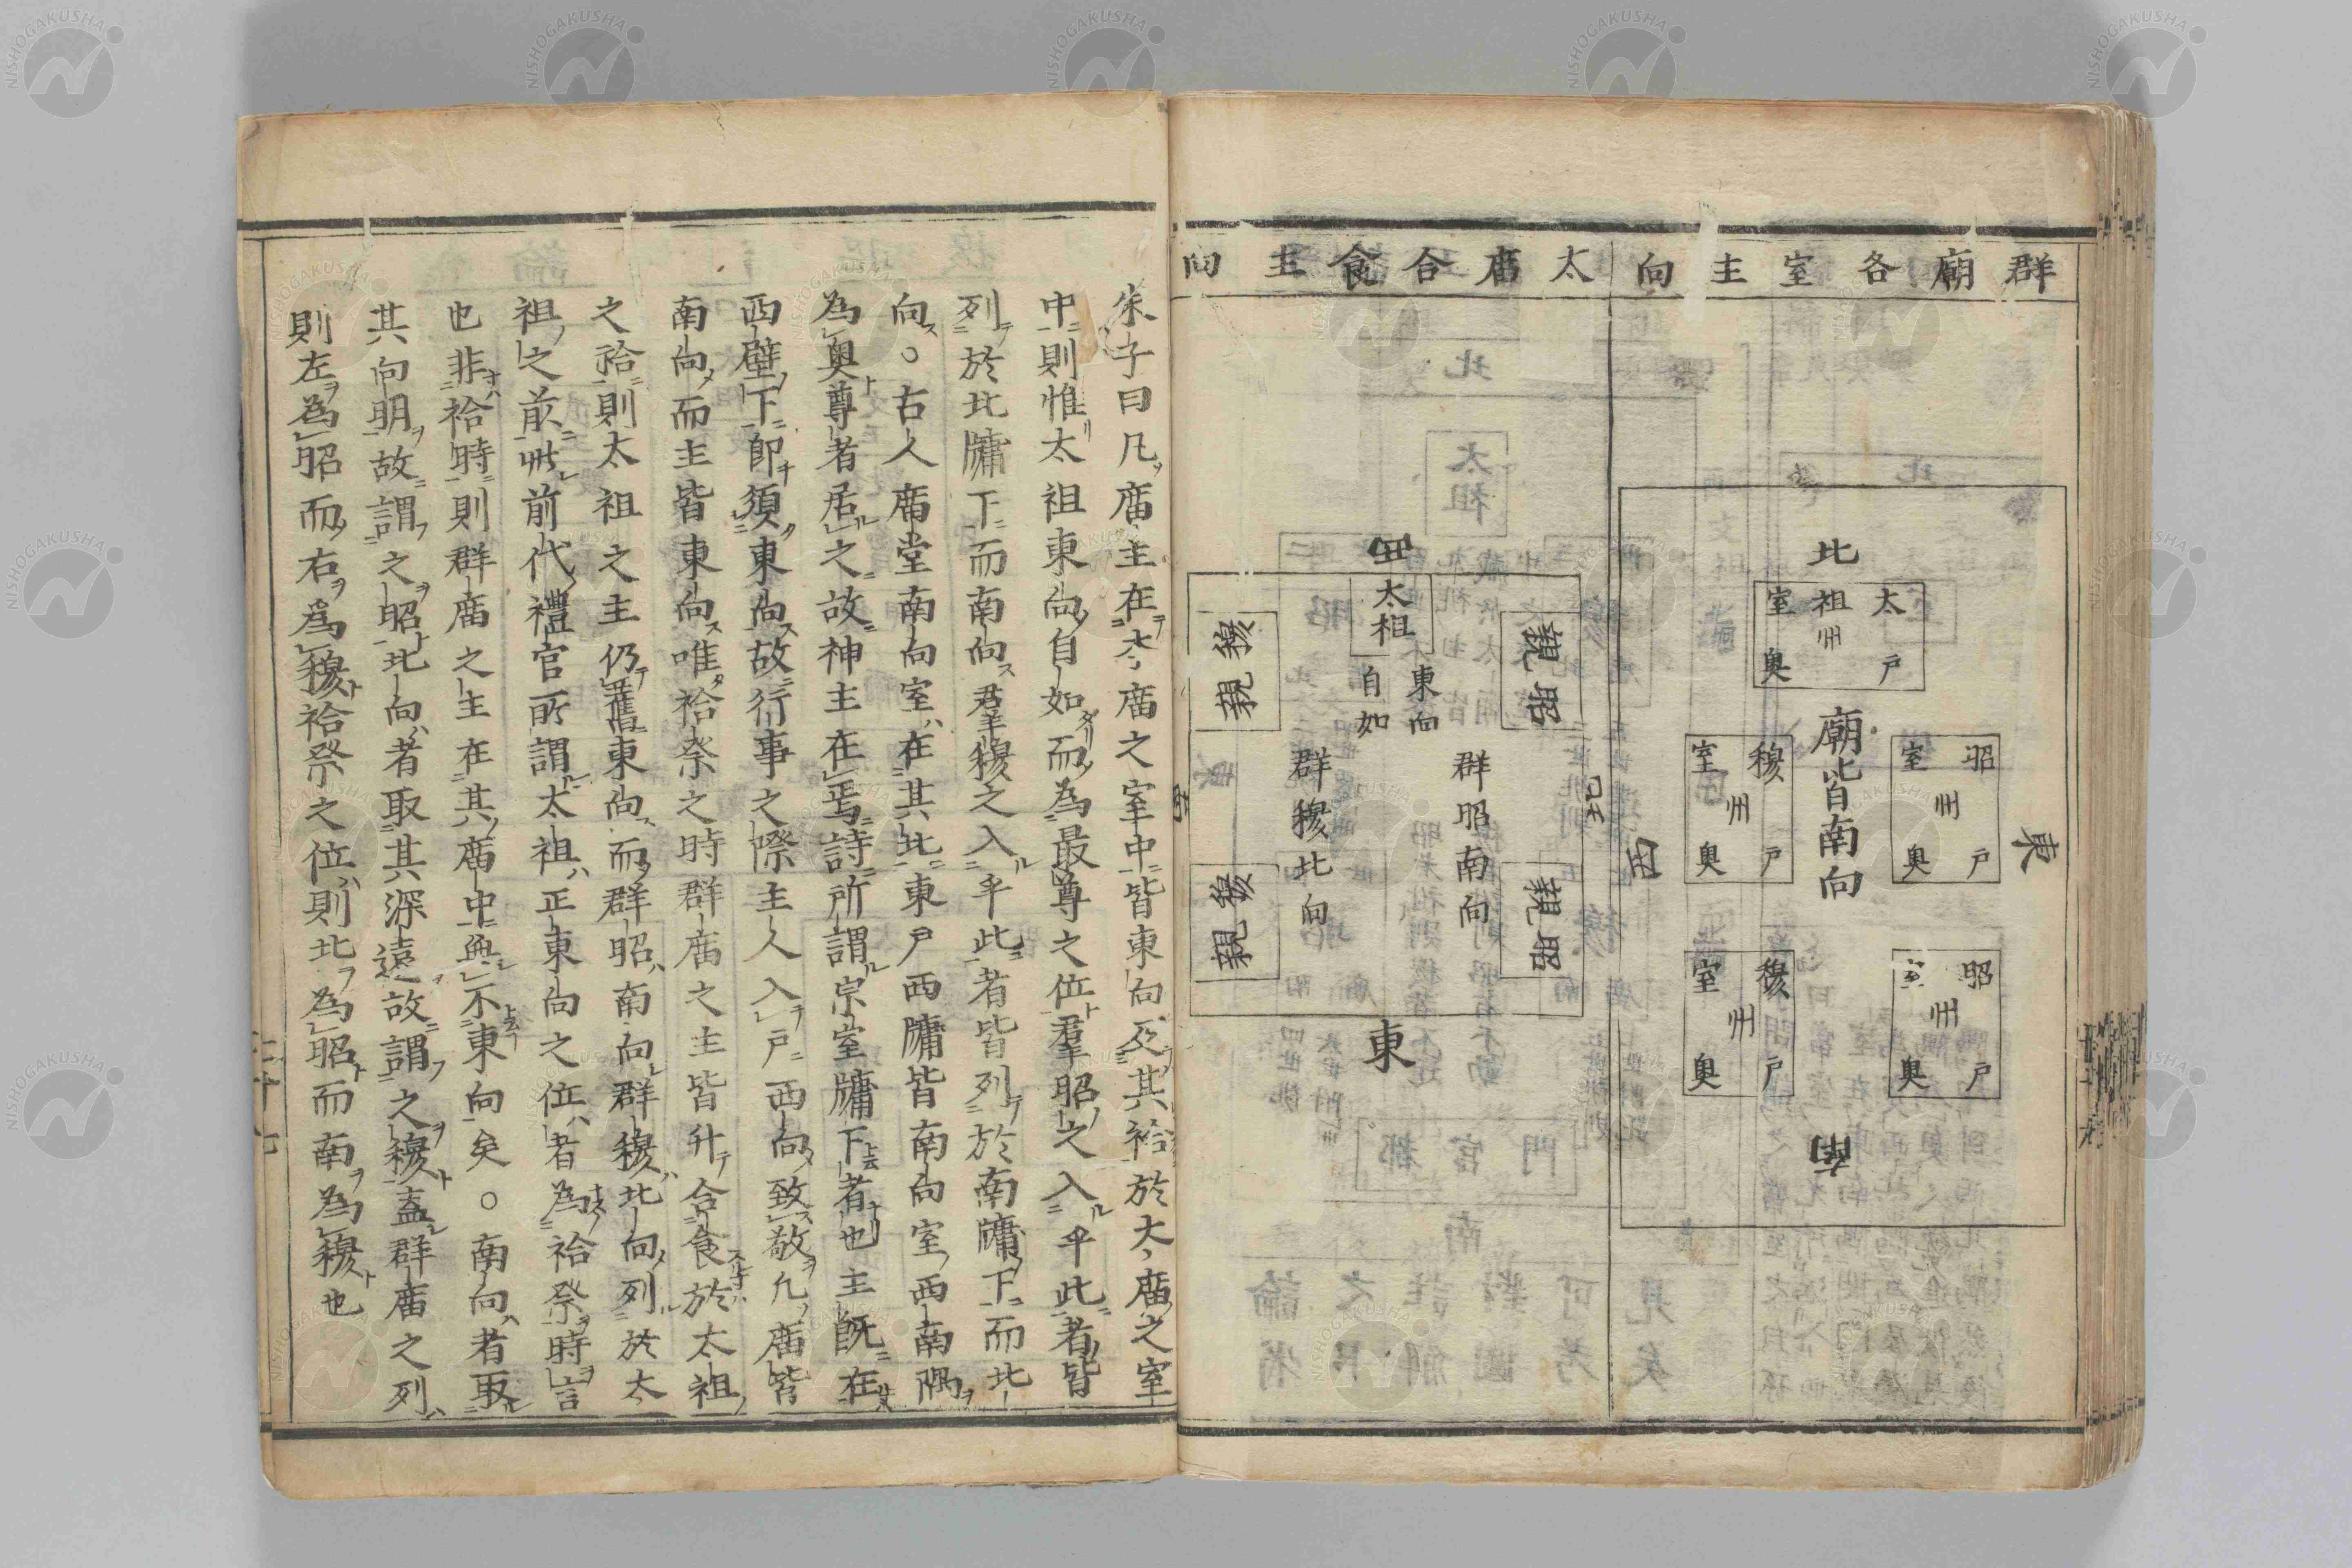 群廟各室主向
北
太祖室
主
戶
奥
廟皆南向
昭室
主
戶
奥
穆室
主
戶
奥
昭室
主
戶
奥
穆室
主
戶
奥
東
西
南
太庿合食主向
西
太祖
東向自如
昭親
昭親
穆親
穆親
群昭南向
群穆北向
北
南
東
朱子曰凡庿主在本庿之室中皆東向及其祫於大庿之室
中則惟太祖東向自如而為最尊之位羣昭之入乎此者皆
列於北牗下而南向羣穆之入乎此者皆列於南牗下而北
向○古人庿堂南向室在其北東戶西牗皆南向室西南隅
為奥尊者居之故神主在焉詩所謂宗室牗下者也主既在
西壁下即須東向故行事之際主人入戶西向致敬凢庿皆
南向而主皆東向唯祫祭之時群庿之主皆升合食於太祖
之祫則太祖之主仍舊東向而群昭南向群穆北向列於太
祖之前此前代禮官所謂太祖正東向之位者為祫祭時言
也非祫時則群庿之主在其庿中無不東向矣○南向者取
其向明故謂之昭北向者取其深遠故謂之穆盖群庿之列
則左為昭而右為穆祫祭之位則北為昭而南為穆也
NISHOGAKUSHA